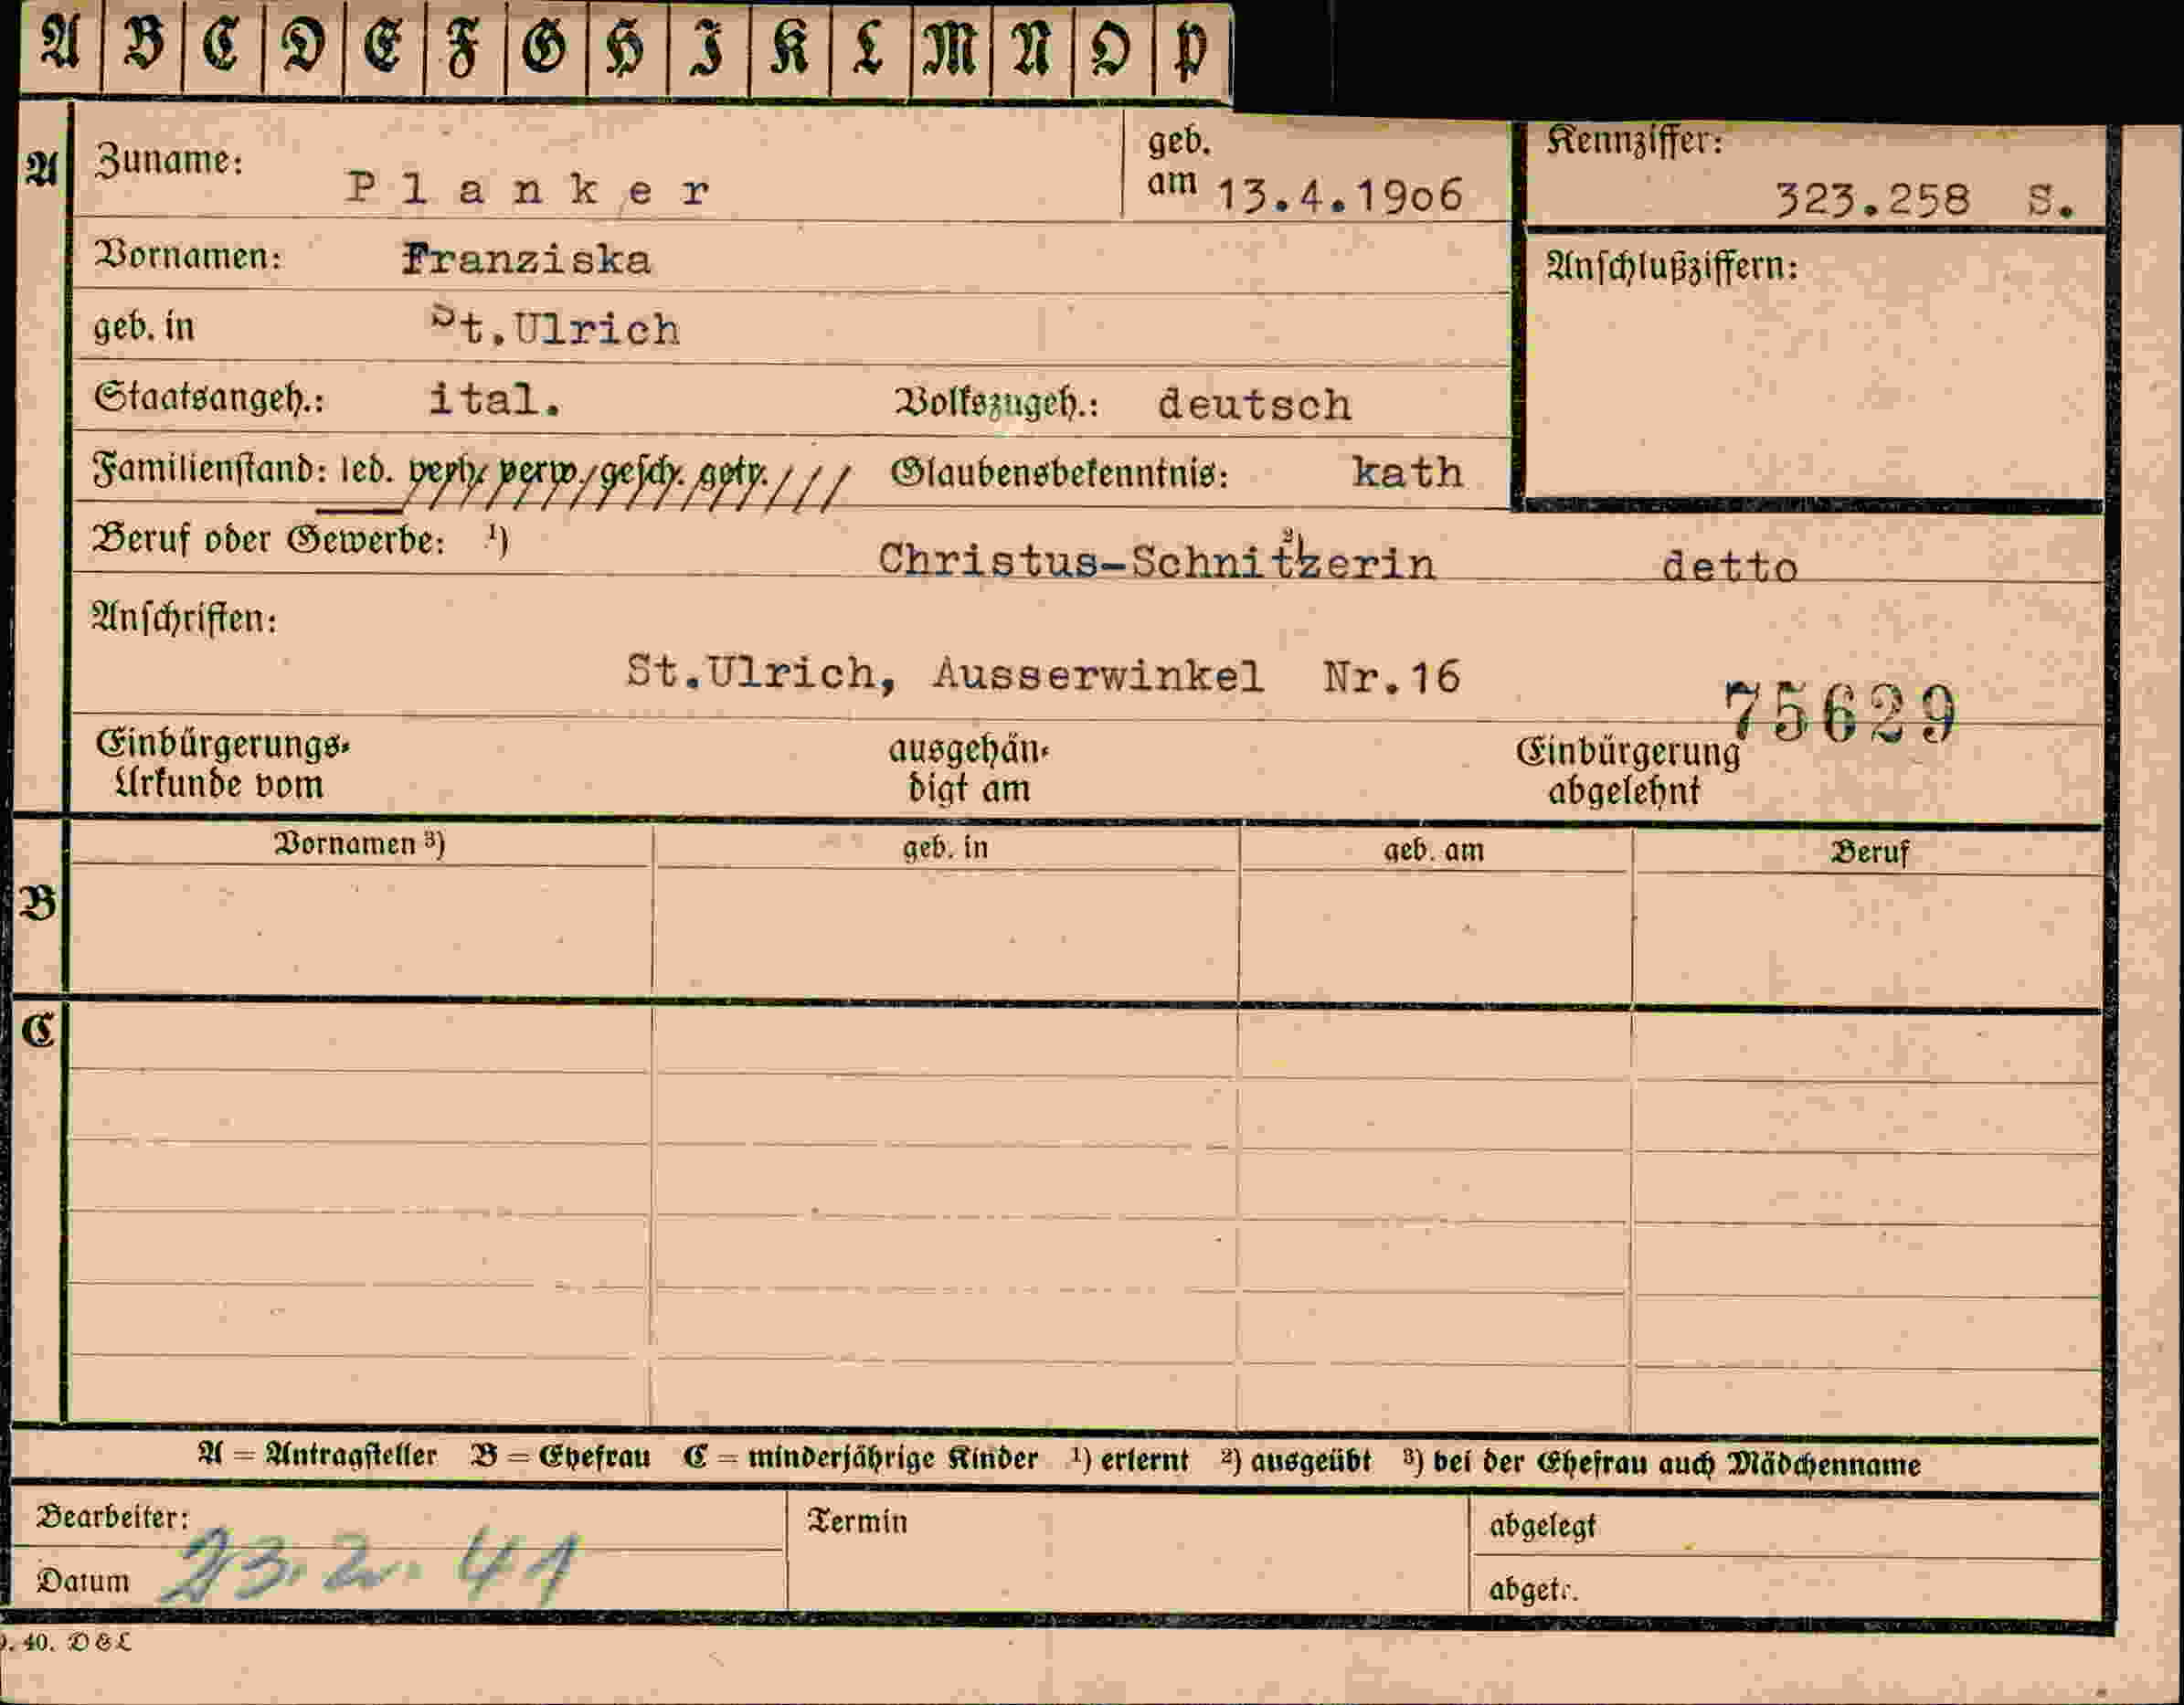 A B C D E F G H I K L M N O P
A
Zuname: Planker
geb. am 13.4.1906
Kennziffer: 323.258 S.
Vornamen: Franziska
Anschlußziffern:
geb. in St.Ulrich
Staatsangeh.: ital. Volkszugeh.: deutsch
Familienstand: led. verh. verw. gesch. getr. Glaubensbekenntnis: kath
Beruf oder Gewerbe: ¹) Christus-Schnitzerin ²) detto
Anschriften:
St.Ulrich, Ausserwinkel Nr.16
75629
Einbürgerungs-
Urkunde vom
ausgehän-
digt am
Einbürgerung
abgelehnt
B
Vornamen ³) geb. in geb. am Beruf
C
A = Antragsteller B = Ehefrau C = minderjährige Kinder ¹) erlernt ²) ausgeübt ³) bei der Ehefrau auch Mädchenname
Bearbeiter:
Datum 23.2.41
Termin
abgelegt
abgetr.
. 40. D&L